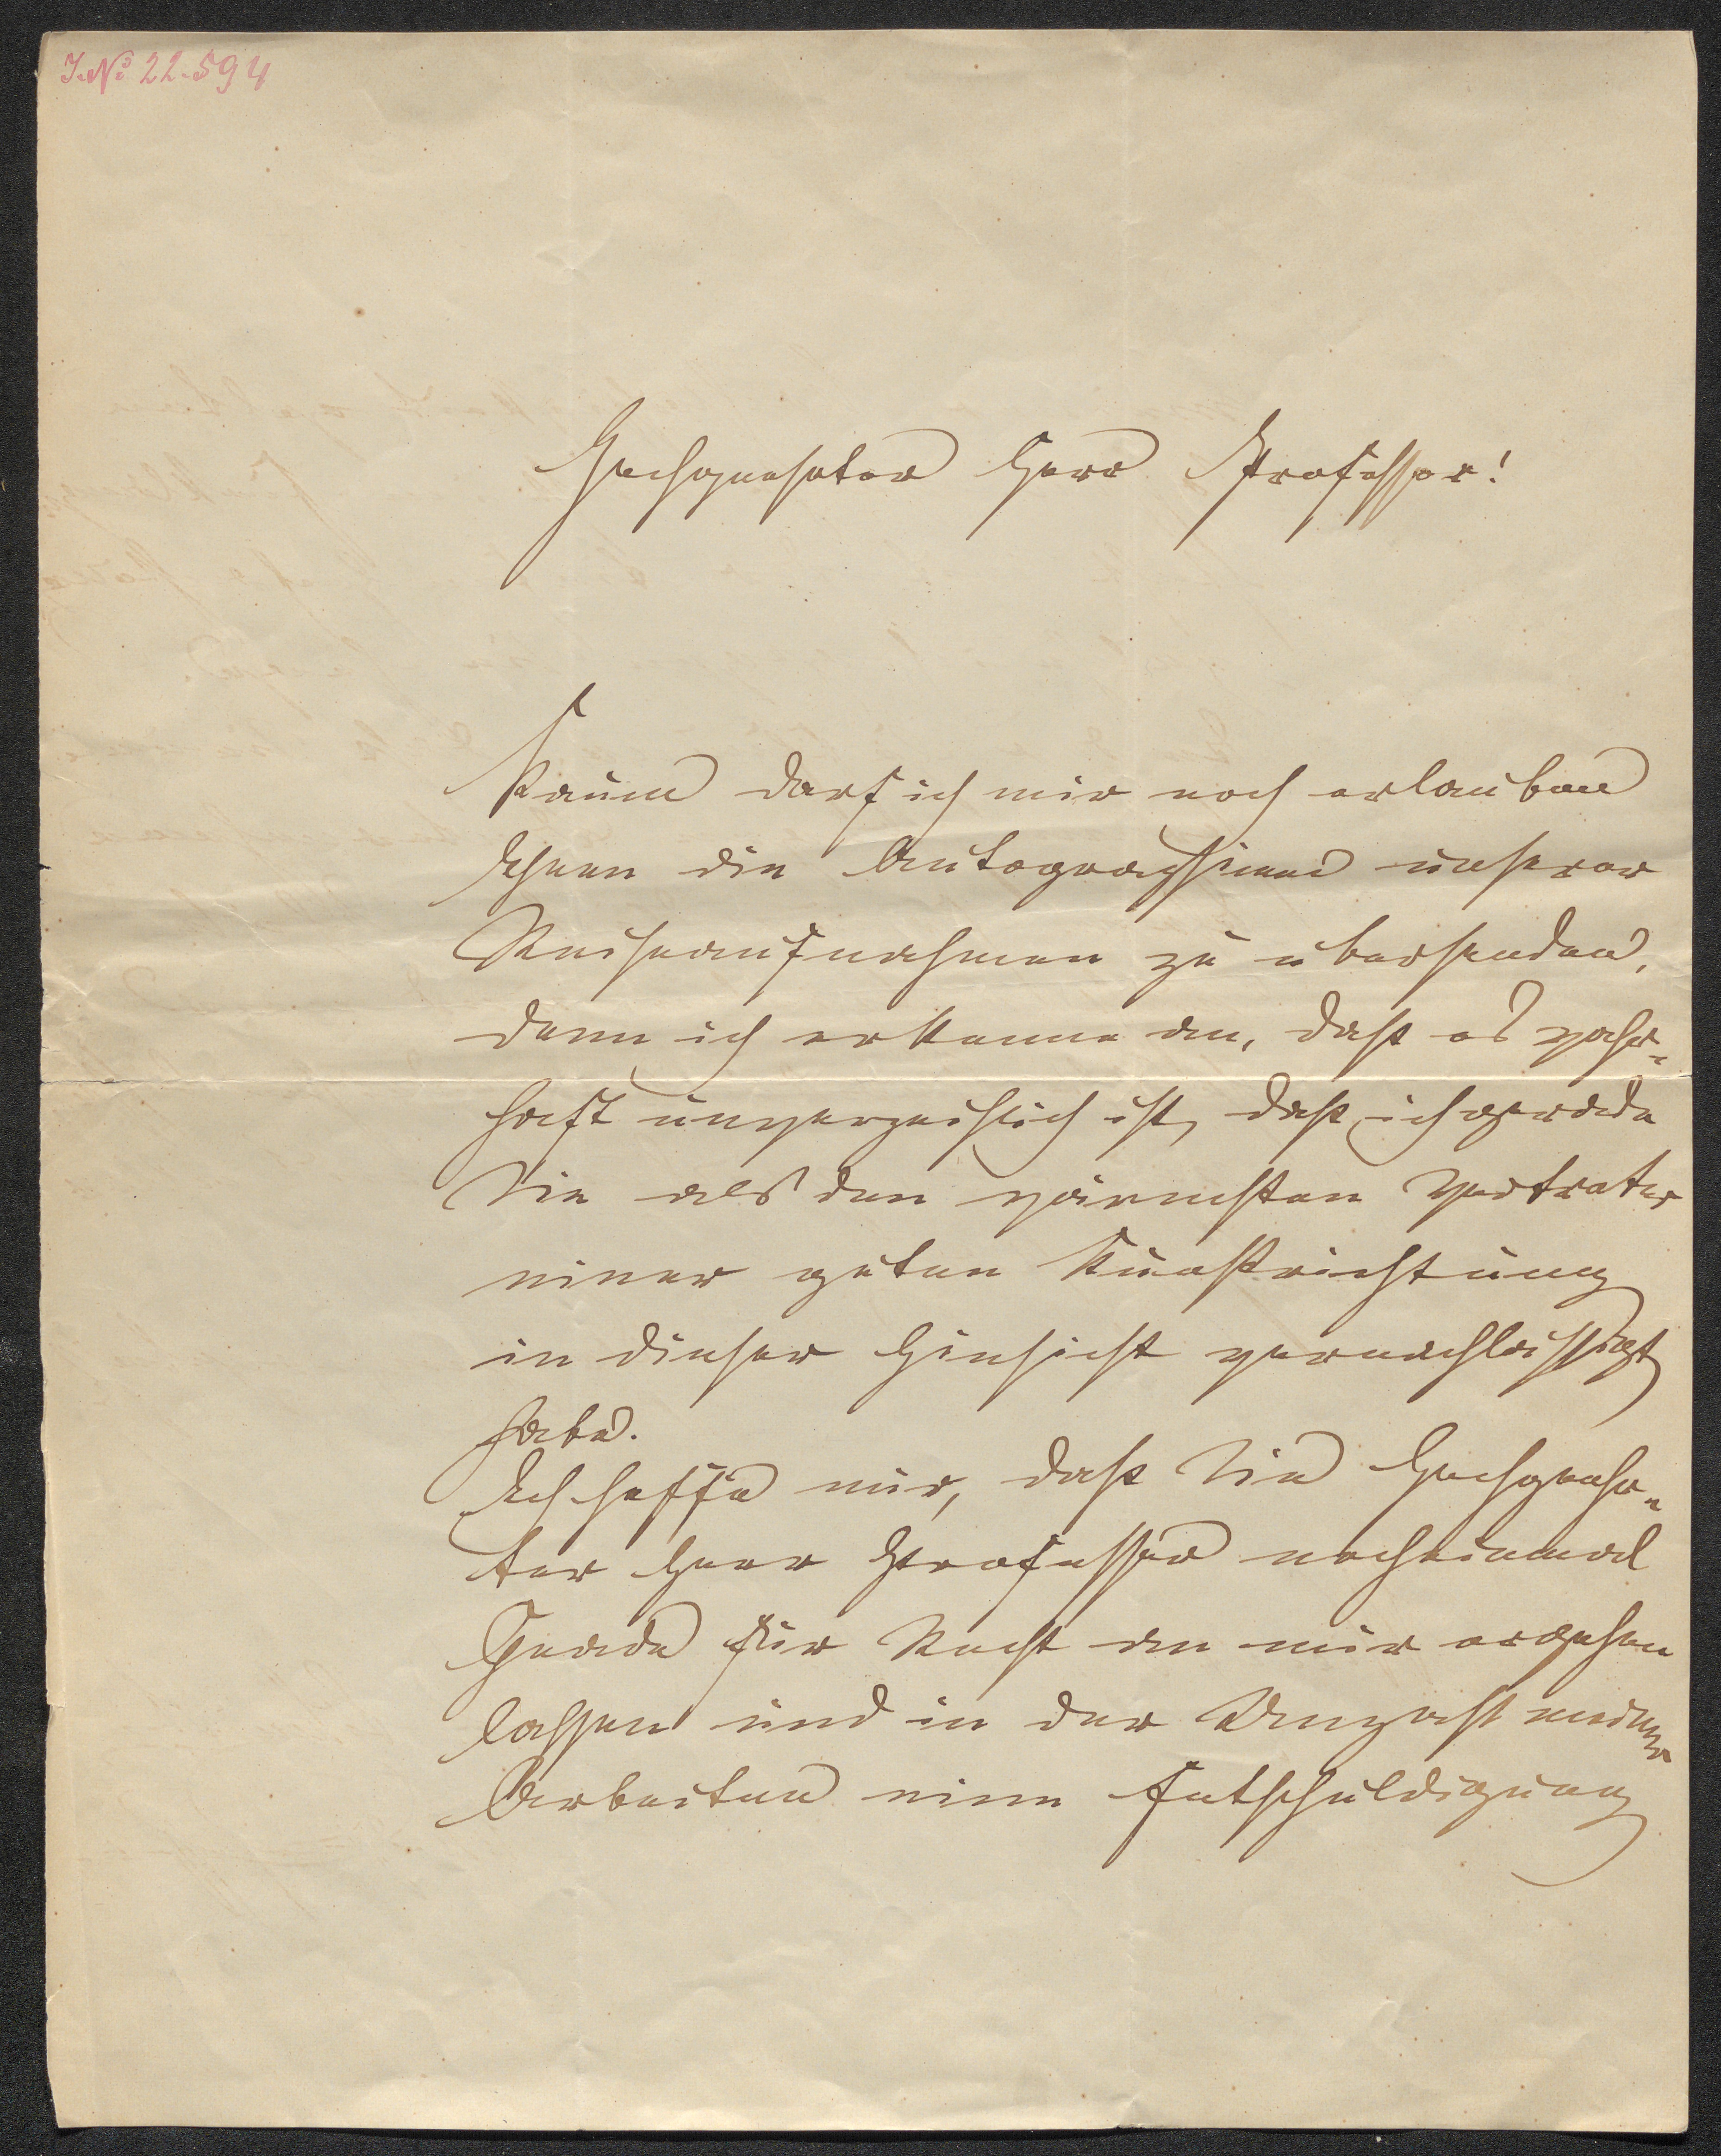 J. No 22.594
Hochgeehrter Herr Professor!
Kaum darf ich mir noch erlauben
Ihnen die Autographieen unserer
Reiseaufnahmen zu übersenden,
denn ich erkenne an, daß es wahr-
haft unverzeihlich ist, daß ich gerade
Sie als den wärmsten Vertreter
einer guten Kunstrichtung
in dieser Hinsicht vernachlässigt
habe.
Ich hoffe nur, daß Sie Hochgeehr-
ter Herr Professor noch einmal
Gnade für Recht an mir ergehen
lassen und in der Unzahl meiner
Arbeiten eine Entschuldigung